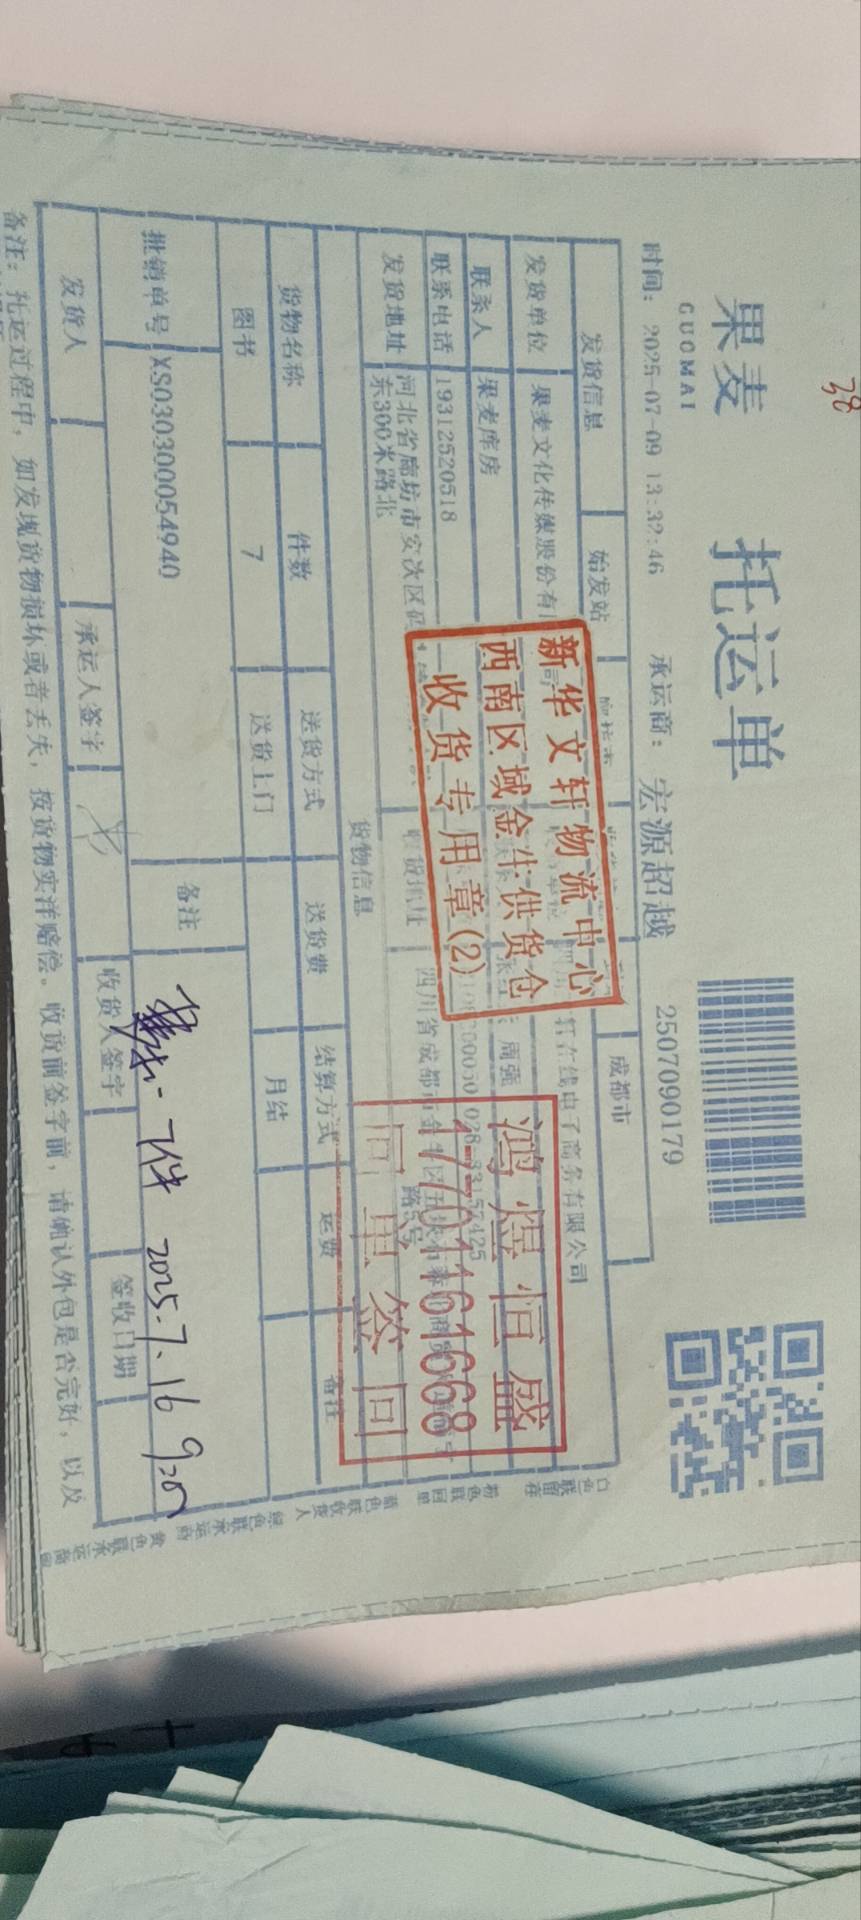 38
果麦
GUOMAI
托运单
时间: 2025-07-09 13:32:46 承运商: 宏源超越 2507090179
发货信息 始发站 成都市
发货单位 果麦文化传媒股份有 轩在线电子商务有限公司
联系人 果麦库房 周强
联系电话 19312520518 028-83157425
发货地址 河北省廊坊市安次区 收货地址 四川省成都市金牛区
东300米路北 路5号
新华文轩物流中心
西南区域金牛供货仓
收货专用章(2)
鸿煜恒盛
17701161668
回单签回
货物信息
货物名称 件数 送货方式 送货费 结算方式 运费 备注
图书 7 送货上门 月结
批销单号 XS030300054940 备注
7件 2025.7.16 9:20
发货人 承运人签字 收货人签字 签收日期
备注: 托运过程中, 如发现货物损坏或者丢失, 按货物实洋赔偿。收货前签字前, 请确认外包是否完好, 以及
白色联留存
粉色联回单
蓝色联收货人
绿色联承运商
黄色联承运商留